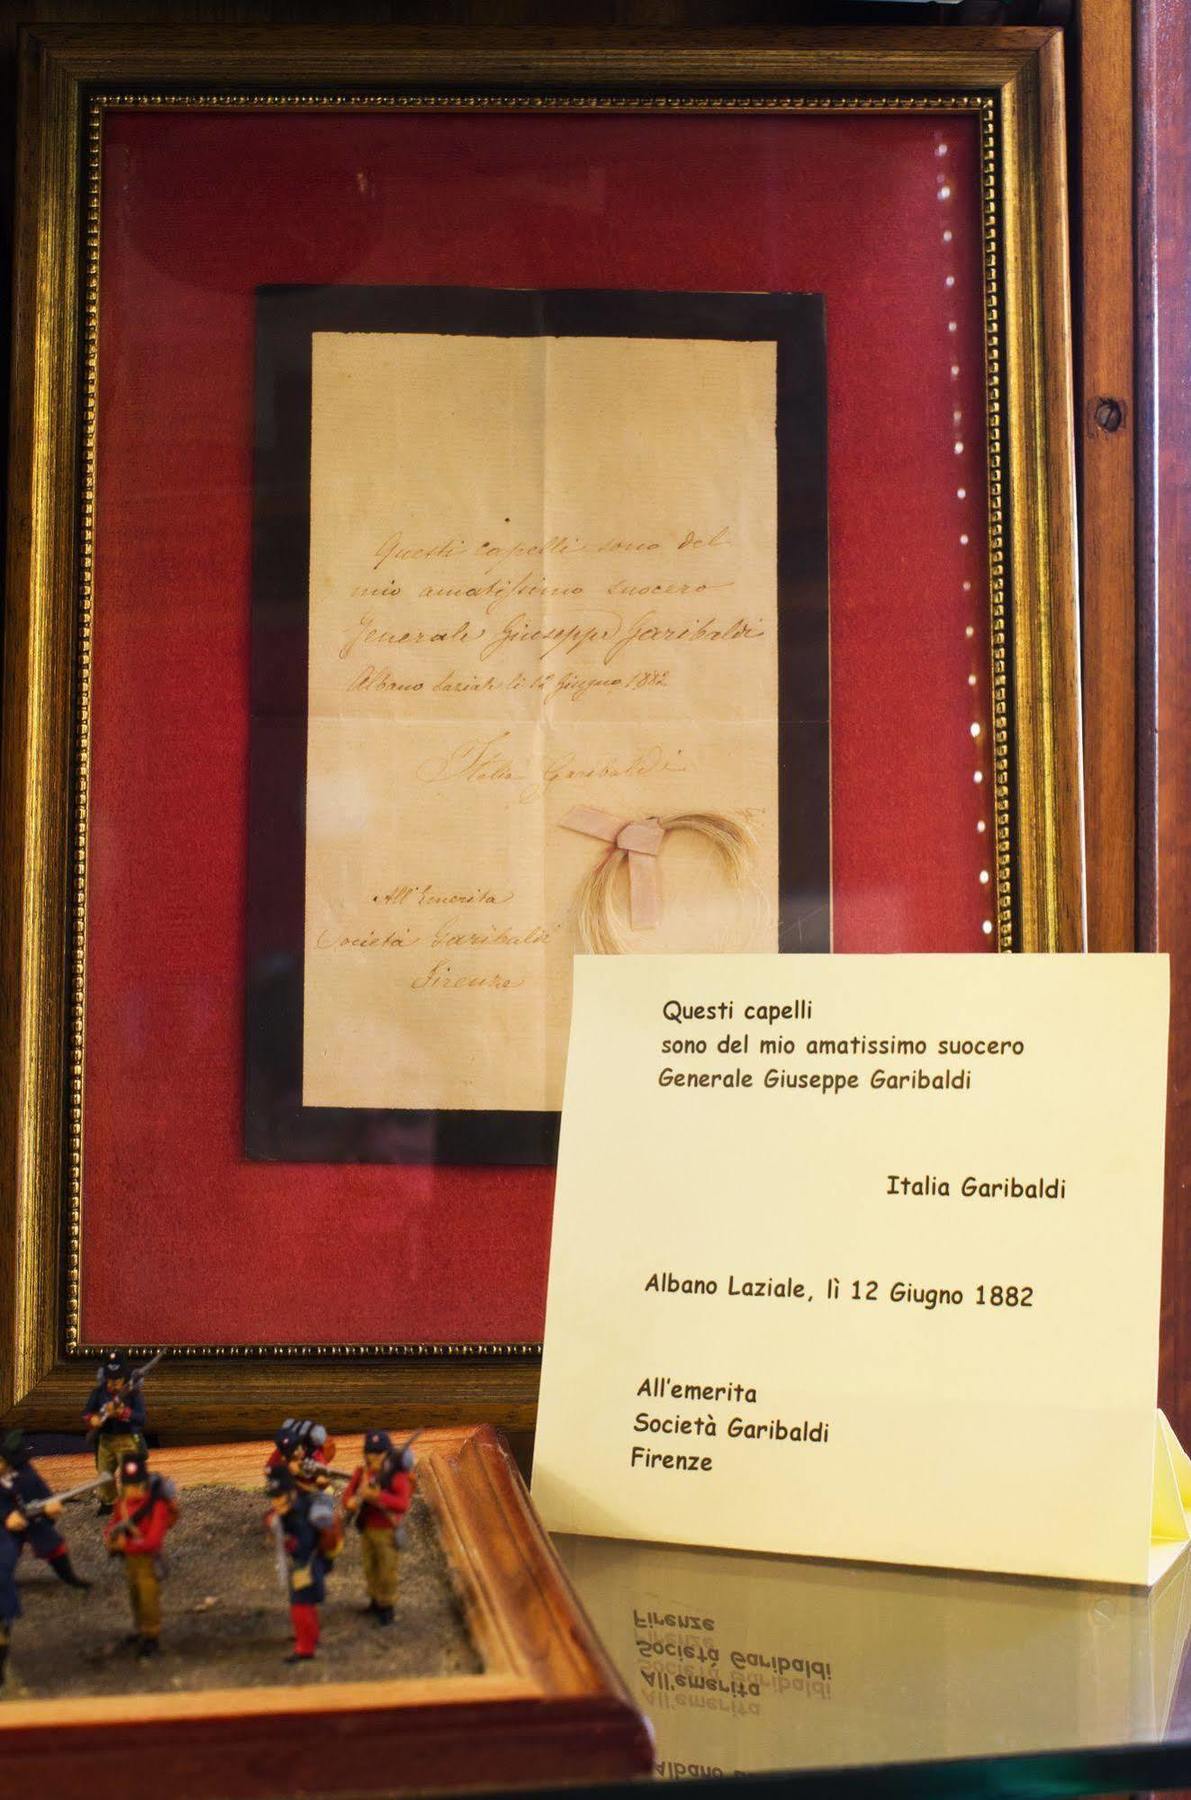 Questi capelli sono del
mio amatissimo suocero
Generale Giuseppe Garibaldi
Albano Laziale li 12 Giugno 1882
Italia Garibaldi
All'Emerita
Società Garibaldi
Firenze
Questi capelli
sono del mio amatissimo suocero
Generale Giuseppe Garibaldi
Italia Garibaldi
Albano Laziale, lì 12 Giugno 1882
All'emerita
Società Garibaldi
Firenze